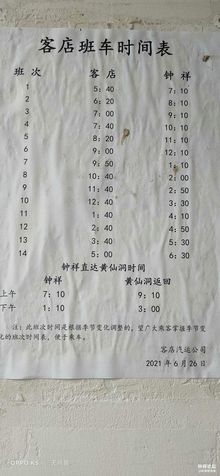 客店班车时间表
班次 客店 钟祥
1 5:40 7:10
2 6:20 8:10
3 7:00
4 7:40
5 8:20
6 9:00 10:10
7 9:50 11:10
8 10:40 12:10
9 11:40 1:10
10 12:40 2:00
11 1:40 2:50
12 2:40 3:30
13 3:40 5:00
14 5:00 6:30
钟祥直达黄仙洞时间
钟祥 黄仙洞返回
上午 7:10 9:10
下午 1:10 3:00
注:此班次时间是根据季节变化调整的,望广大乘客掌握季节变
化的班次时间表,便于乘车。
客店汽运公司
2021年6月26日
OPPO K5